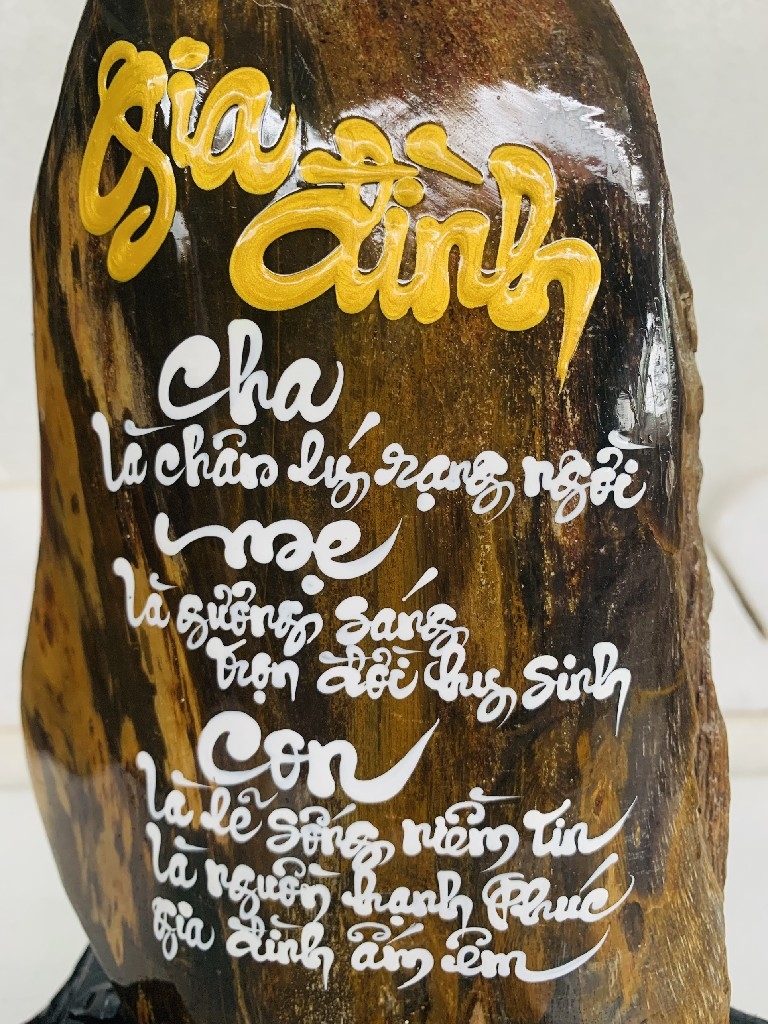 gia
đình
Cha
là chân lý rạng ngời
mẹ
là gương sáng
trọn đời hy sinh
Con
là lẽ sống niềm tin
là nguồn hạnh phúc
gia đình ấm êm